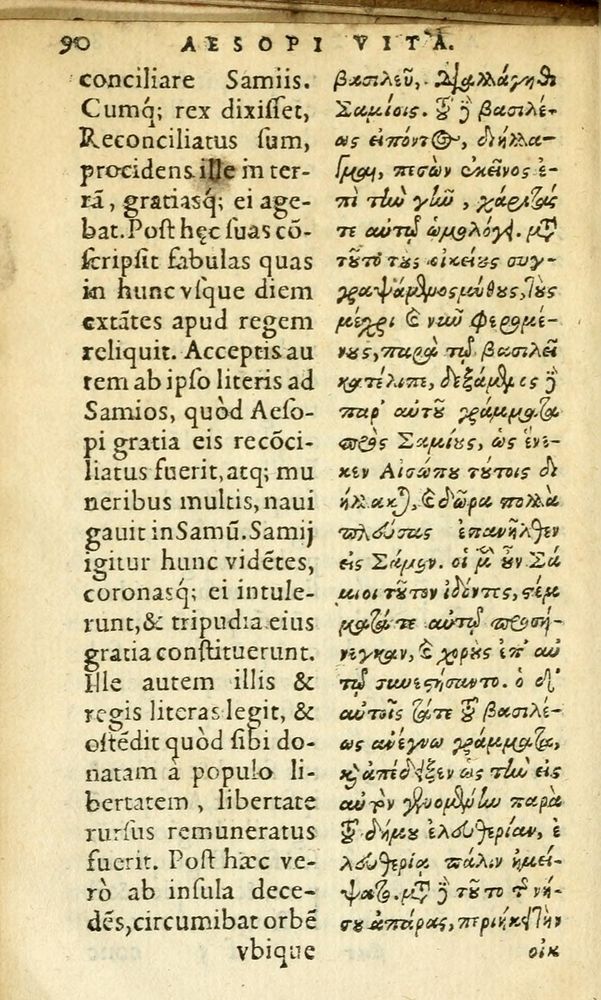 90 AESOPI VITA.
conciliare Samiis.
Cumq́; rex dixisset,
Reconciliatus sum,
procidens ille in ter-
rā, gratiasq́; ei age-
bat. Post hęc suas cō-
scripsit fabulas quas
in hunc vsque diem
extātes apud regem
reliquit. Acceptis au
tem ab ipso literis ad
Samios, quòd Aeso-
pi gratia eis recōci-
liatus fuerit, atq; mu
neribus multis, naui
gauit in Samū. Samij
igitur hunc vidētes,
coronasq́; ei intule-
runt, & tripudia eius
gratia constituerunt.
Ille autem illis &
regis literas legit, &
ostēdit quòd sibi do-
natam à populo li-
bertatem, libertate
rursus remuneratus
fuerit. Post hæc ve-
rò ab insula dece-
dēs, circumibat orbē
vbique
βασιλεῦ, διαλλάγηθι
Σαμίοις. τοῦ δὲ βασιλέ-
ως εἰπόντος, διήλλα-
γμαι, πεσὼν ἐκεῖνος ἐ-
πὶ τὴν γῆν, χάριτάς
τε αὐτῷ ὡμολόγει. μετὰ
τοῦτο τοὺς οἰκείους συγ-
γραψάμενος μύθους, τοὺς
μέχρι καὶ νῦν φερομέ-
νους, παρὰ τῷ βασιλεῖ
κατέλιπε, δεξάμενος δὲ
παρ' αὐτοῦ γράμματα
πρὸς Σαμίους, ὡς ἕνε-
κεν Αἰσώπου τούτοις δι
ήλλακται, καὶ δῶρα πολλὰ
πλεύσας ἐπανῆλθεν
εἰς Σάμον. οἱ μὲν οὖν Σά
μιοι τοῦτον ἰδόντες, στέμ
ματά τε αὐτῷ προσή-
νεγκαν, καὶ χοροὺς ἐπ' αὐ
τῷ συνεστήσαντο. ὁ δ'
αὐτοῖς τά τε τοῦ βασιλέ-
ως ἀνέγνω γράμματα,
καὶ ἀπέδειξεν ὡς τὴν εἰς
αὐτὸν γενομένην παρὰ
τοῦ δήμου ἐλευθερίαν, ἐ
λευθερίᾳ πάλιν ἠμεί-
ψατο. μετὰ δὲ τοῦτο τῆς νή-
σου ἀπάρας, περιήει τὴν
οἰκ